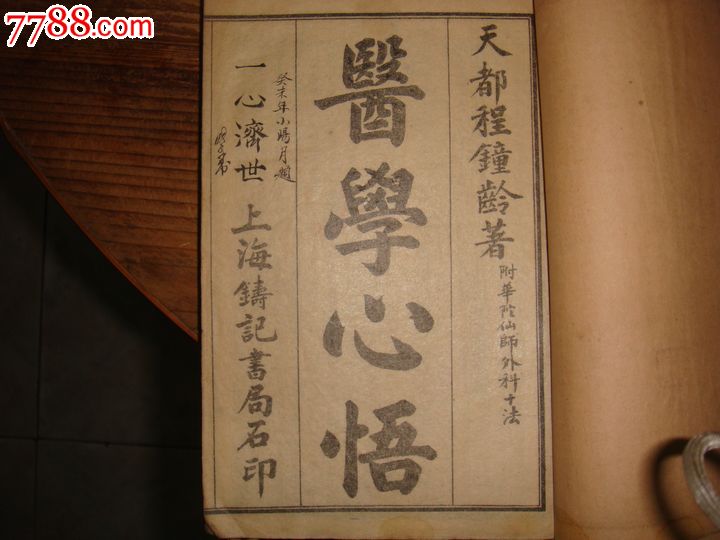 7788.com
天都程鐘齡著
附華陀仙師外科十法
醫學心悟
癸未年小陽月
一心濟世
上海鑄記書局石印